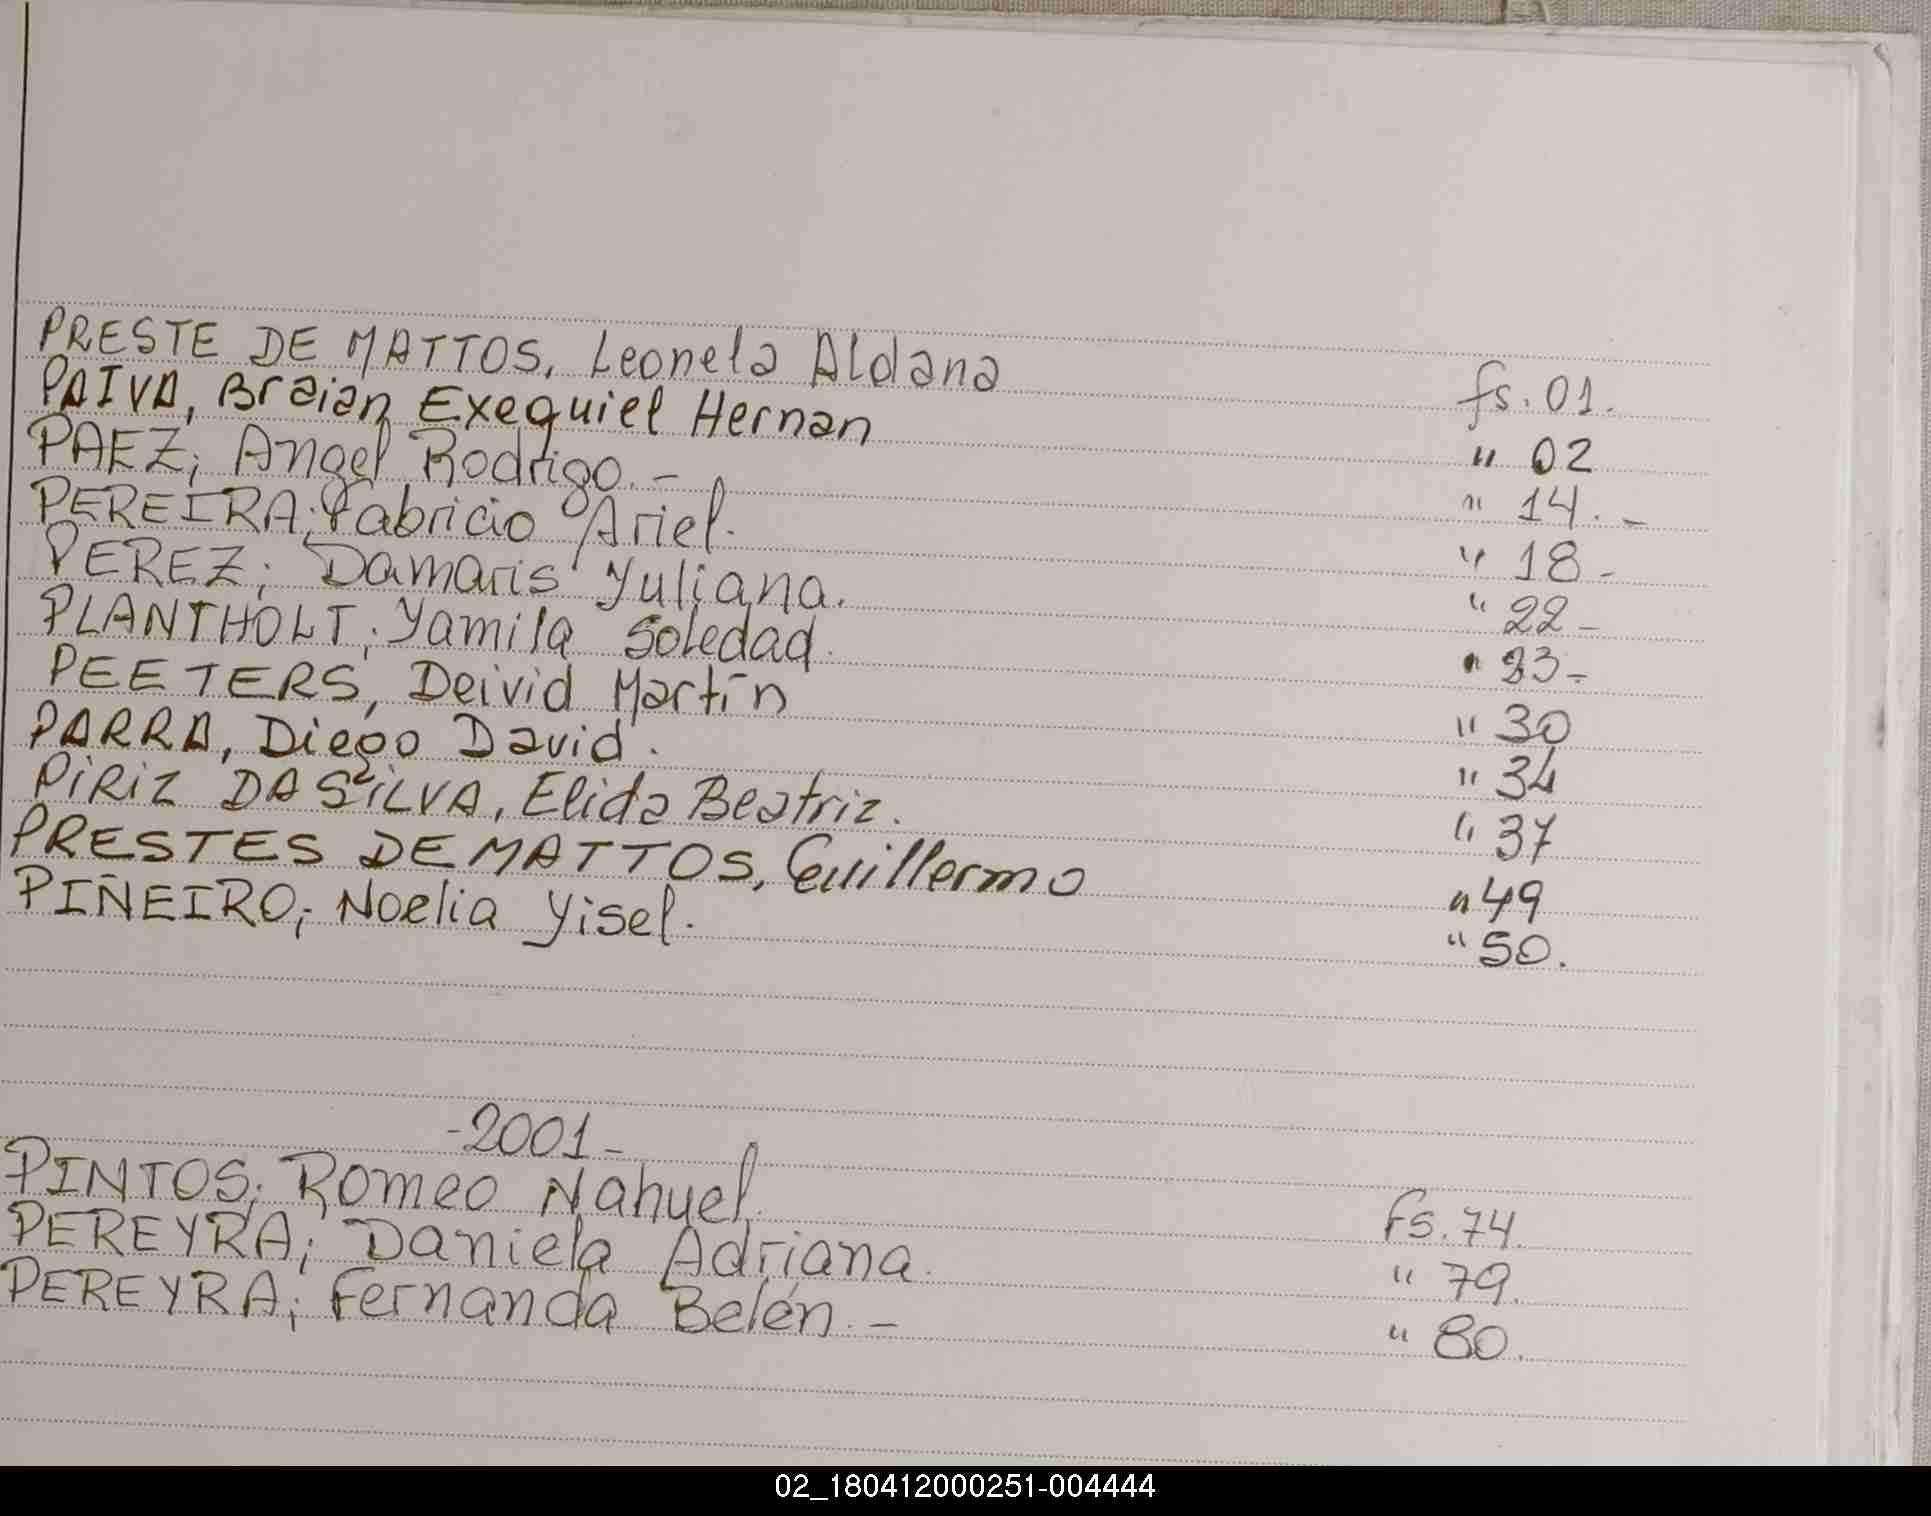 PRESTE DE MATTOS, Leonela Aldana fs. 01.
PAIVA, Braian Exequiel Hernan " 02
PAEZ; Angel Rodrigo. - " 14. -
PEREIRA; Fabricio Ariel. " 18 -
PEREZ; Damaris Yuliana. " 22 -
PLANTHOLT; Yamila Soledad. " 23 -
PEETERS, Deivid Martín " 30
PARRA, Diego David. " 34
PiRiZ DA SiLVA, Elida Beatriz. " 37
PRESTES DE MATTOS, Guillermo " 49
PIÑEIRO; Noelia Yisel. " 50.
-2001-
PINTOS; Romeo Nahuel. Fs. 74.
PEREYRA; Daniela Adriana. " 79.
PEREYRA; Fernanda Belén. - " 80.
02_180412000251-004444